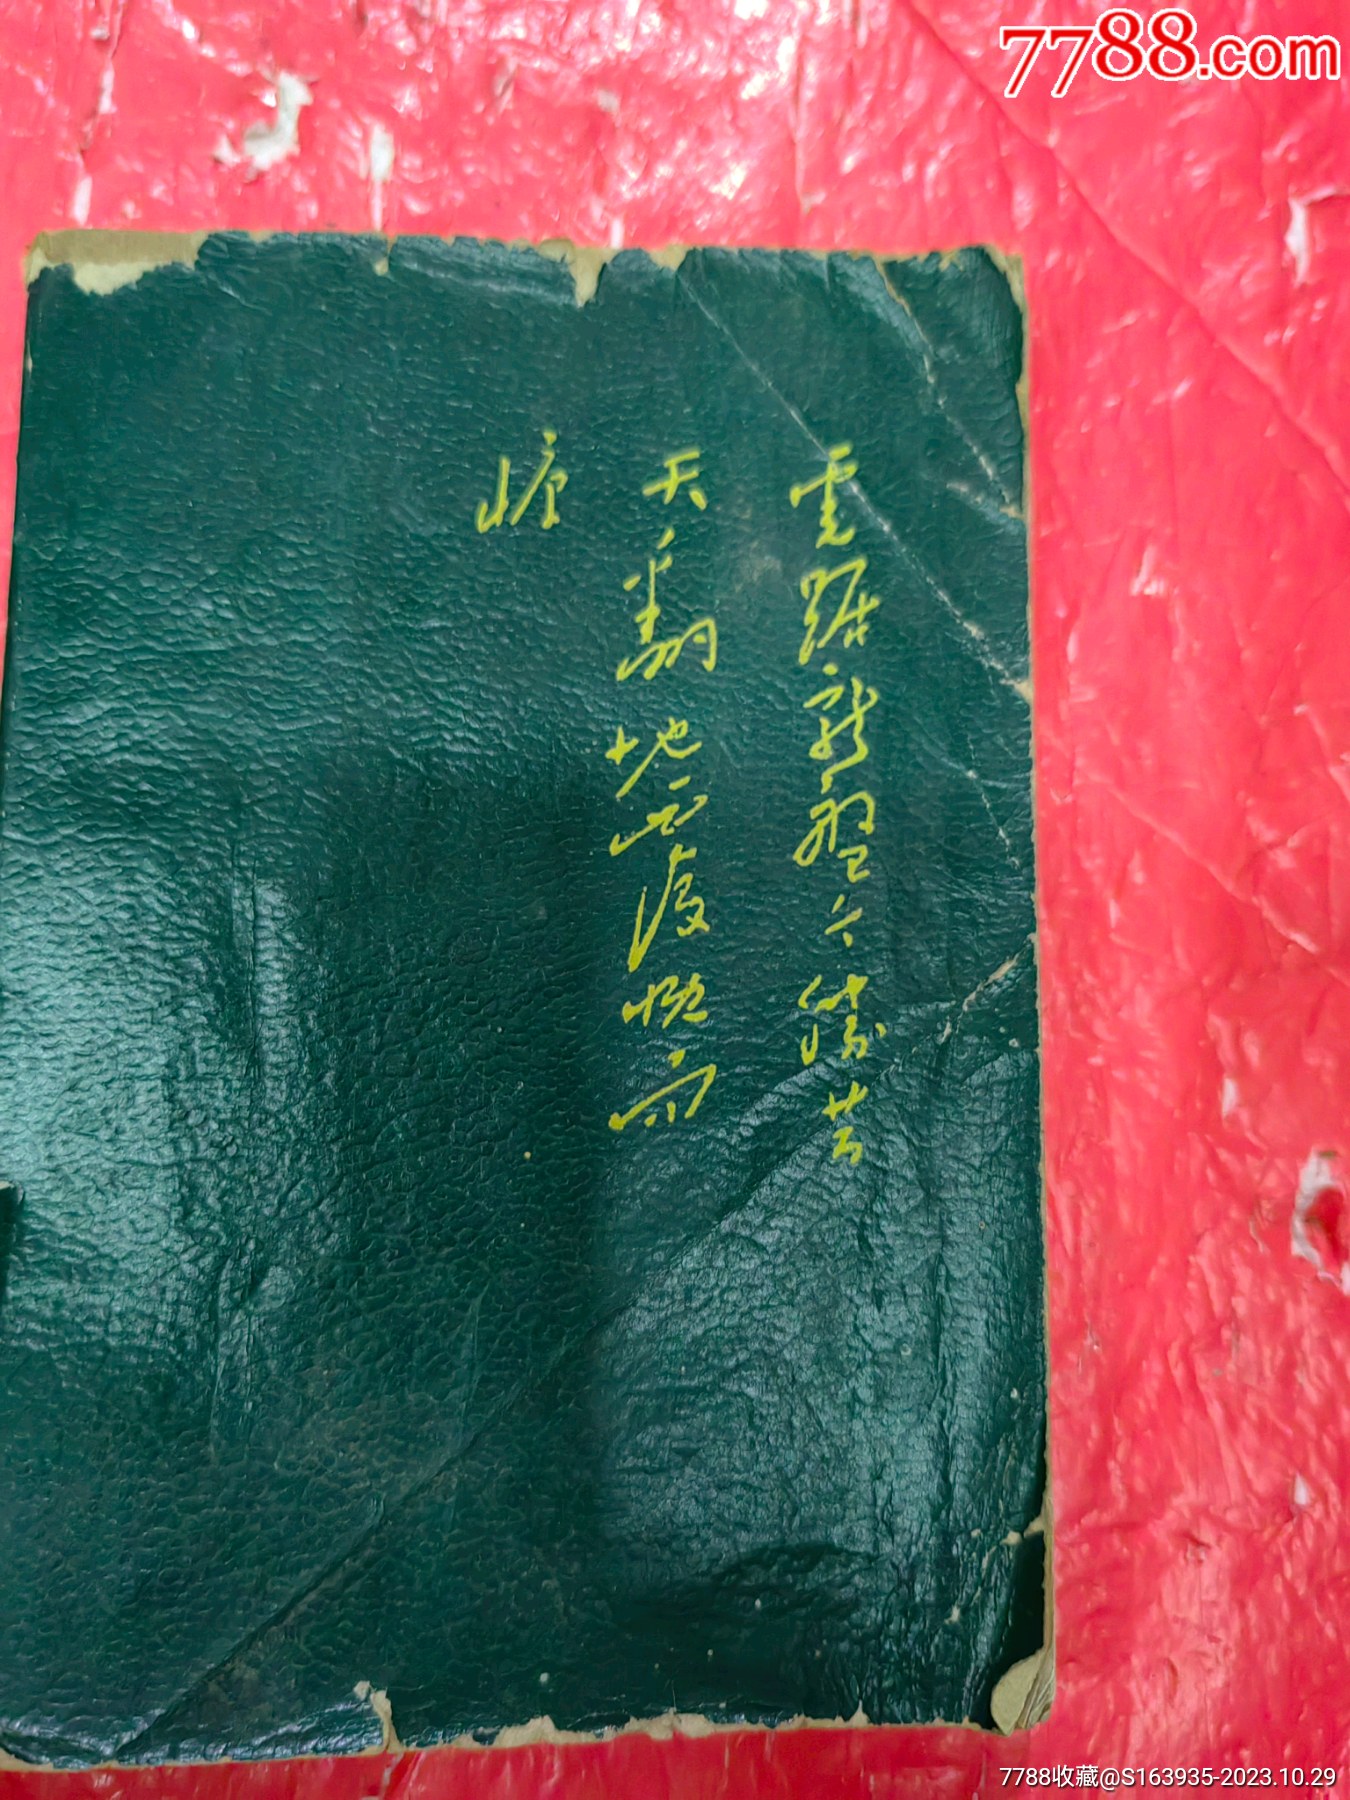 7788.com
虎踞龍盤今勝昔
天翻地覆慨而
慷
7788收藏@S163935-2023.10.29